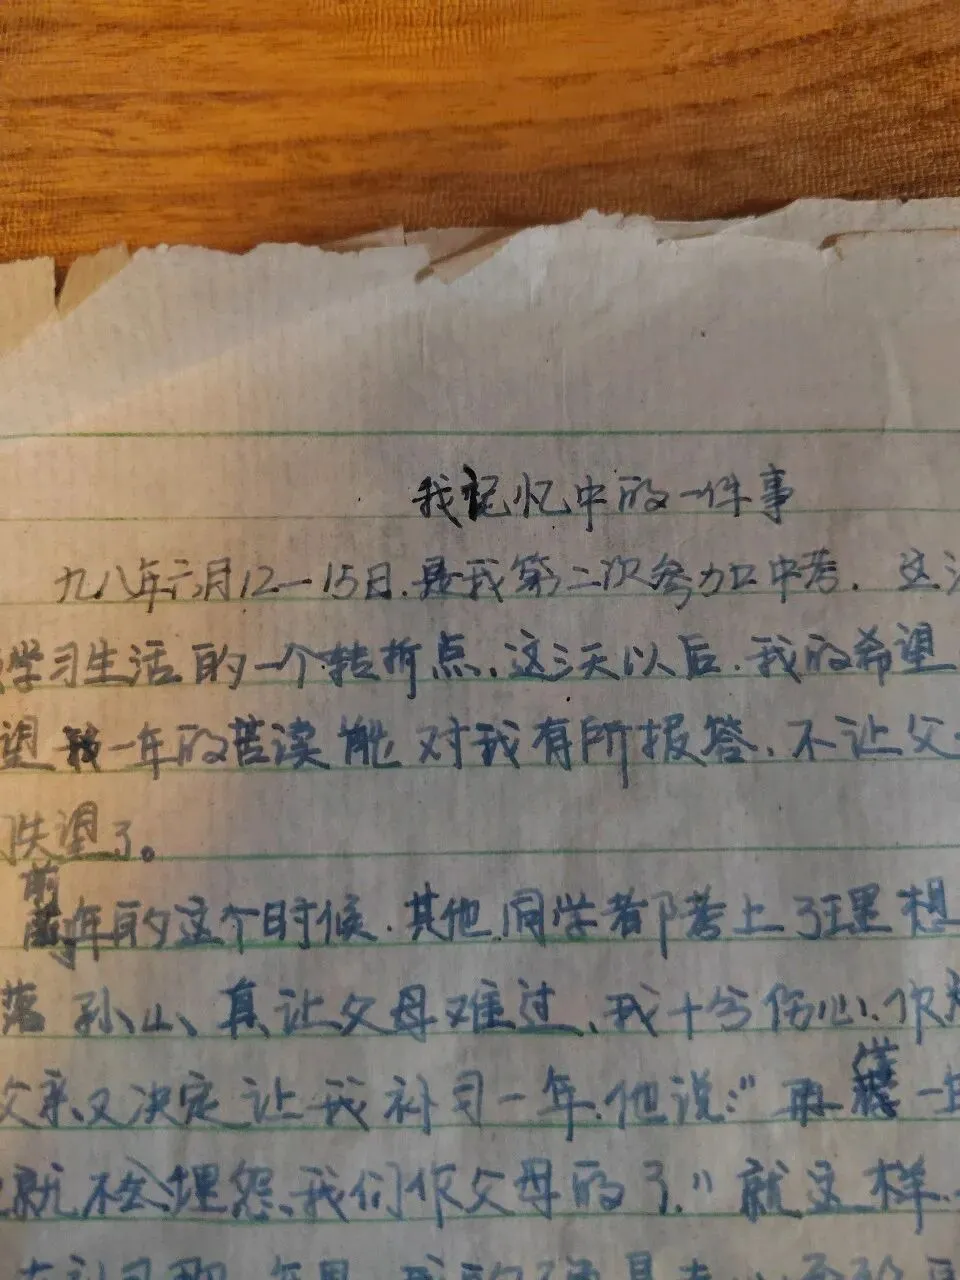 我记忆中的一件事
九八年六月12—15日.是我第二次参加中考.这
学习生活的一个转折点.这三天以后.我的希望
望我一年的苦读能对我有所报答.不让父
失望了。
前
年的这个时候.其他同学都考上了理想
落孙山、真让父母难过、我十分伤心.作
父亲又决定让我补习一年.他说:"再 一
就不会埋怨我们作父母的了."就这样.